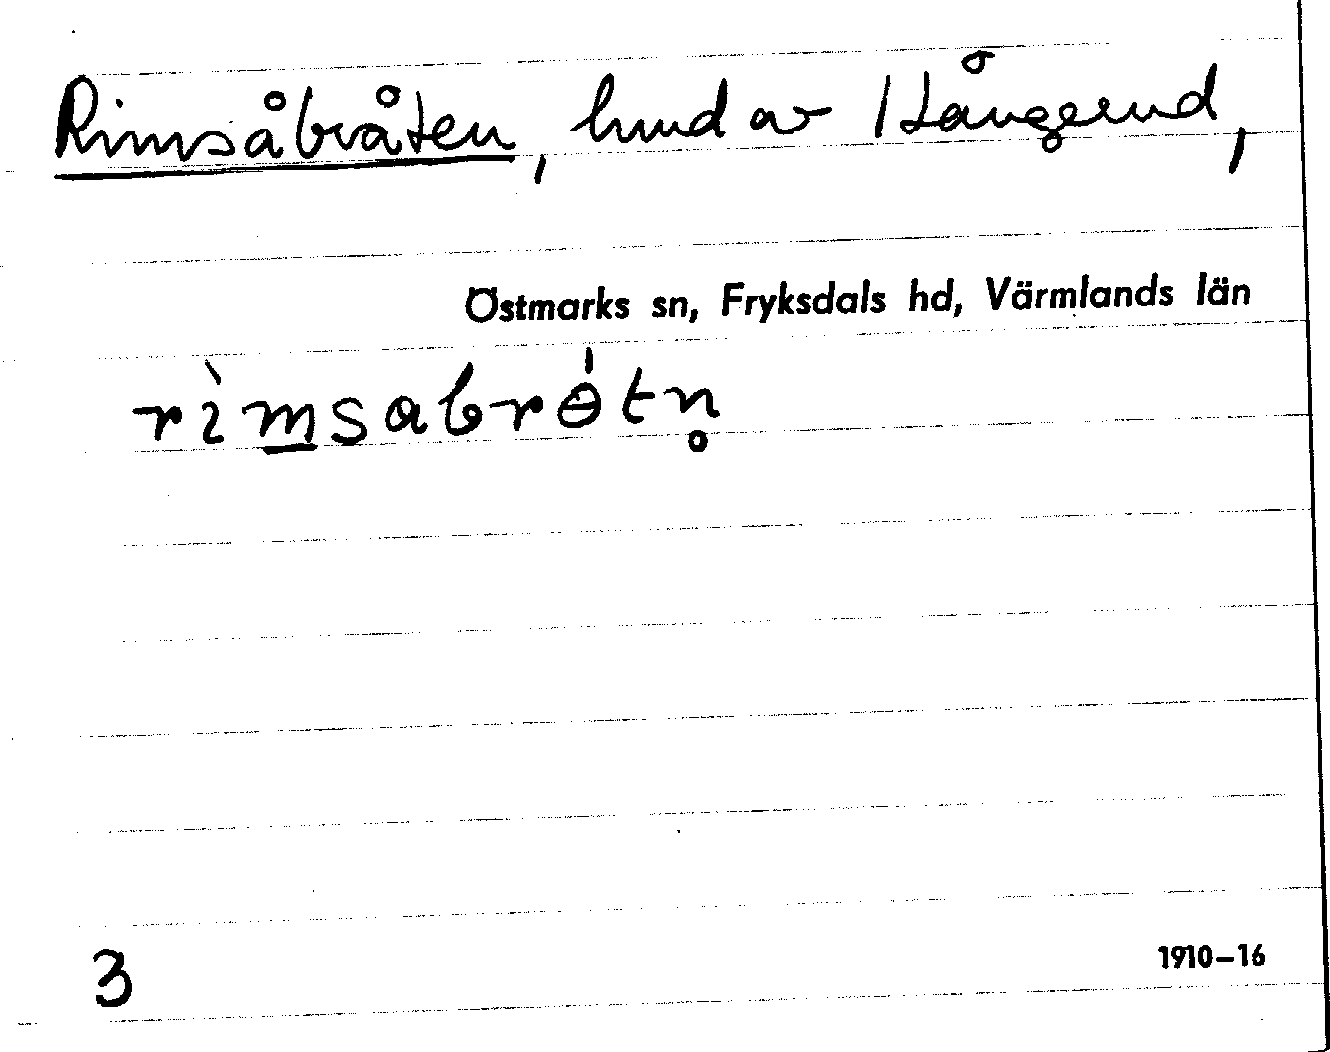 Rimsåbråten, hmd av Hångerud,
Östmarks sn, Fryksdals hd, Värmlands län
rìmsabrɵ́tn̥
3
1910–16